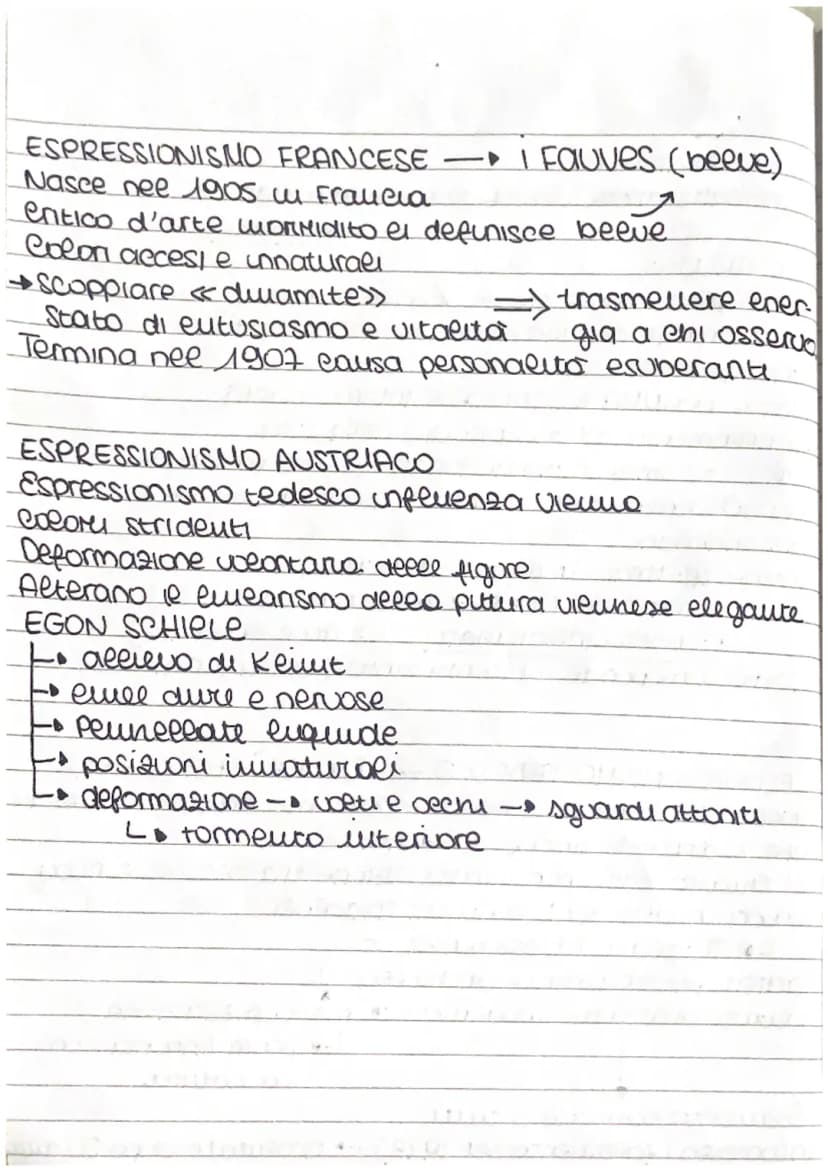 ESPRESSIONISMO FRANCESE → i FAUVES (belve)
Nasce nel 1905 in Francia
critico d'arte inorridito li definisce belve
Colori accesi e innaturali
→ scoppiare «dinamite» ⇒ trasmettere ener-
stato di entusiasmo e vitalità gia a chi osserva
Termina nel 1907 causa personalità esuberanti
ESPRESSIONISMO AUSTRIACO
Espressionismo tedesco influenza Vienna
colori stridenti
Deformazione volontaria delle figure
Alterano il linearismo della pittura viennese elegante
EGON SCHIELE
↳ allievo di Klimt
↳ linee dure e nervose
↳ Pennellate liquide
↳ posizioni innaturali
↳ deformazione → volti e occhi → sguardi attoniti
↳ tormento interiore